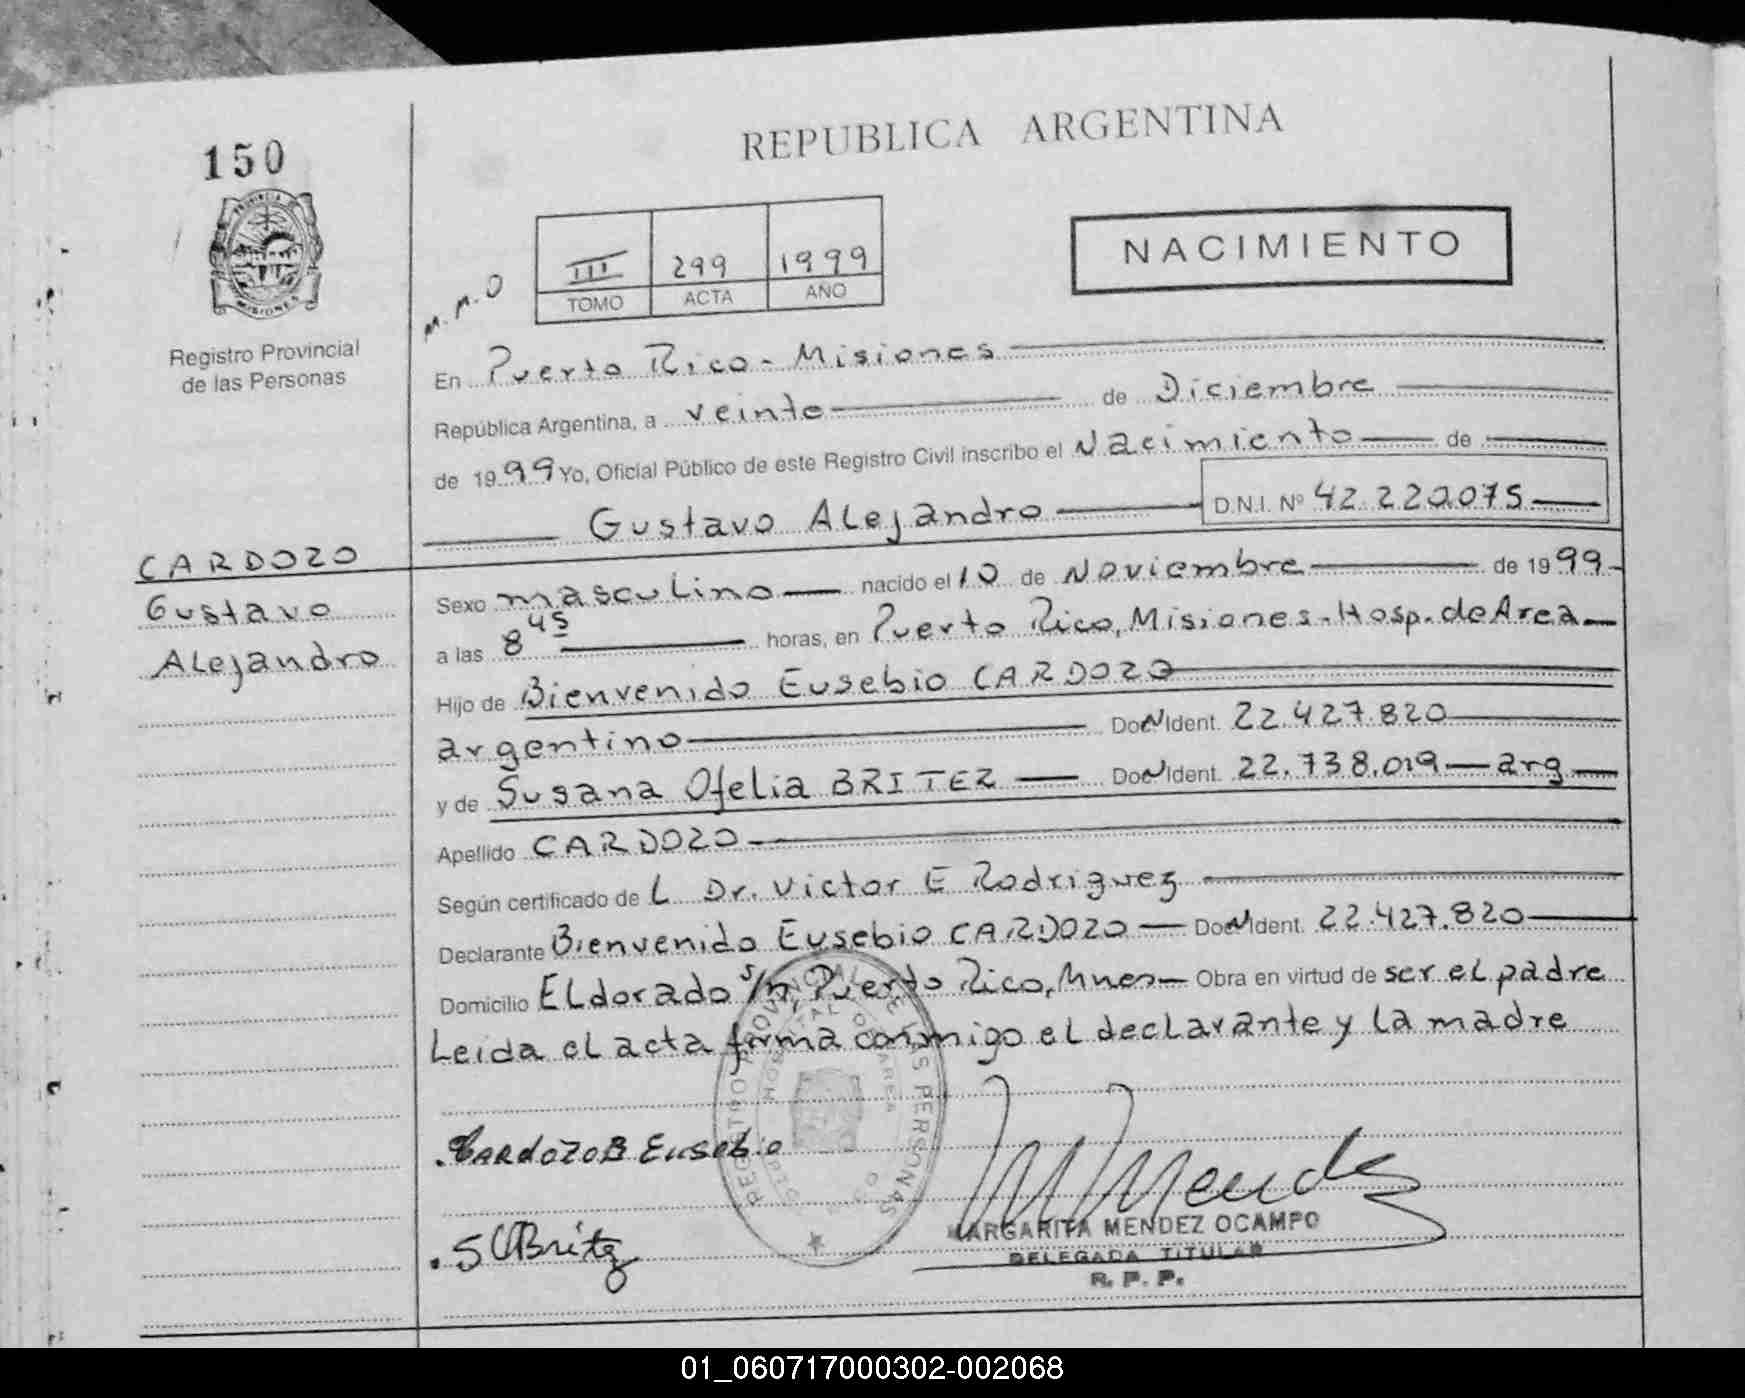 150
REPUBLICA ARGENTINA
PROVINCIA DE
MISIONES
Registro Provincial
de las Personas
III 299 1999
TOMO ACTA AÑO
NACIMIENTO
M.M.O
En Puerto Rico - Misiones
República Argentina, a veinte de Diciembre
de 1999 Yo, Oficial Público de este Registro Civil inscribo el Nacimiento de
Gustavo Alejandro D.N.I. Nº 42.220.075
CARDOZO
Gustavo
Alejandro
Sexo masculino nacido el 10 de Noviembre de 1999
a las 8 45 horas, en Puerto Rico, Misiones. Hosp. de Area
Hijo de Bienvenido Eusebio CARDOZO
argentino Doc N Ident. 22.427.820
y de Susana Ofelia BRITEZ Doc N Ident. 22.738.019 arg
Apellido CARDOZO
Según certificado de L Dr. Victor E Rodriguez
Declarante Bienvenido Eusebio CARDOZO Doc N Ident. 22.427.820
Domicilio Eldorado s/n, Puerto Rico, Mnes Obra en virtud de ser el padre
Leida el acta firma conmigo el declarante y la madre
REGISTRO PROVINCIAL DE LAS PERSONAS
HOSPITAL DE AREA
CARDOZO B Eusebio
S O Britez
M Mendez
MARGARITA MENDEZ OCAMPO
DELEGADA TITULAR
R. P. P.
01_060717000302-002068